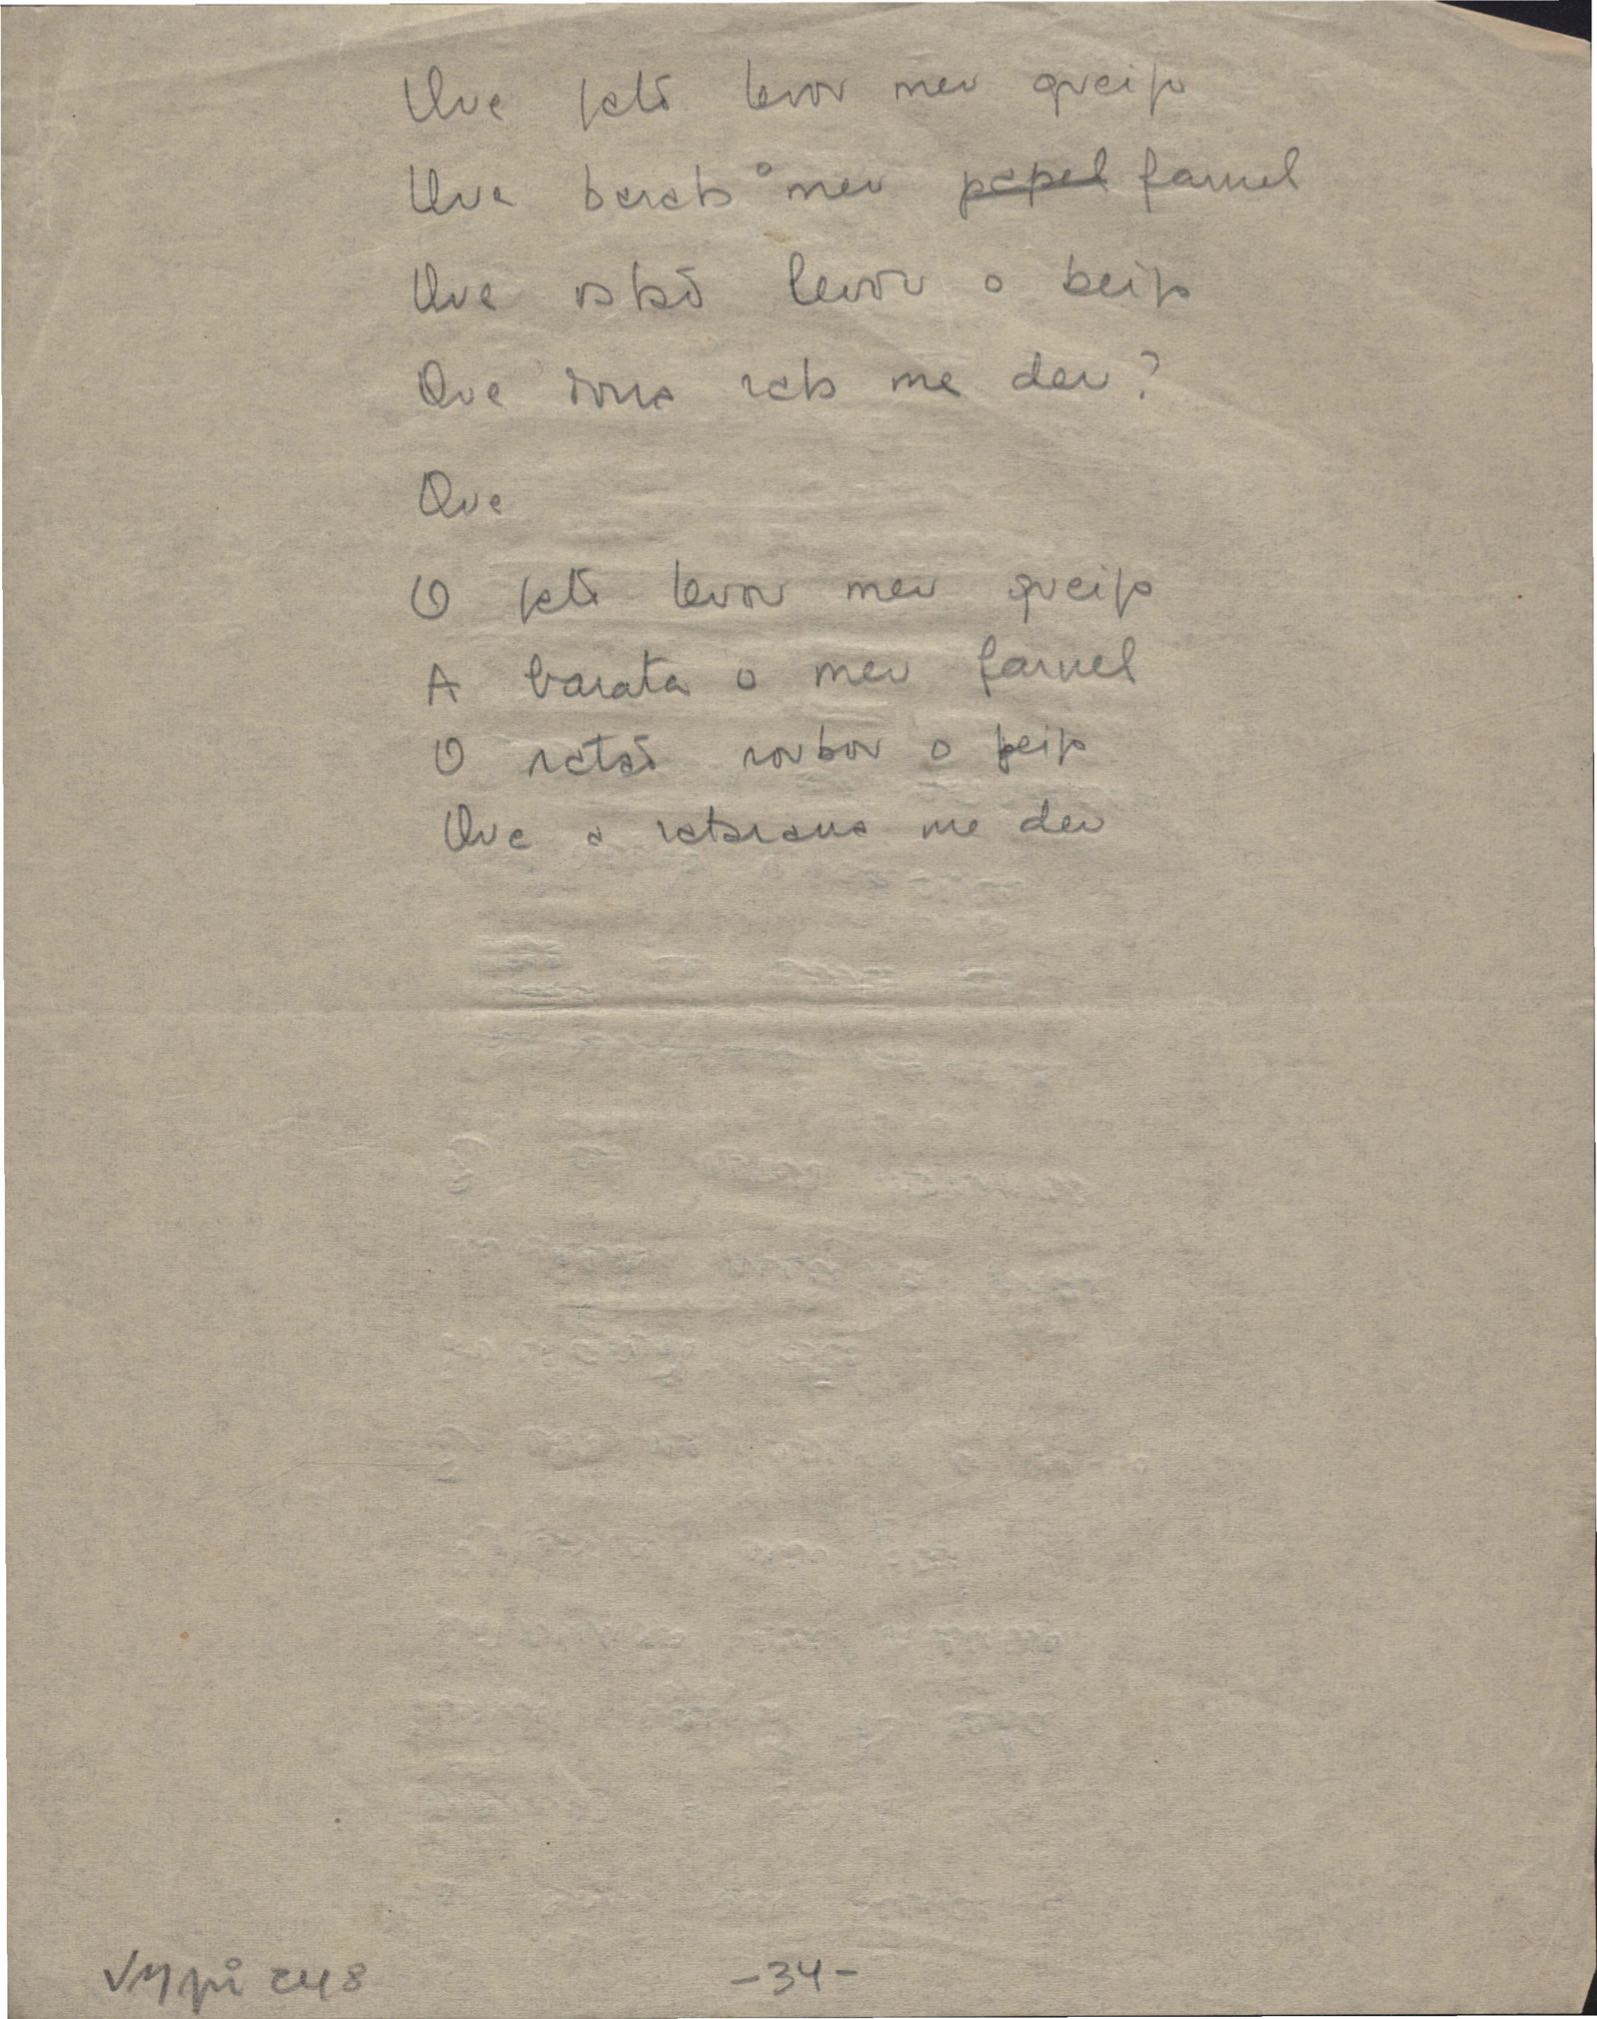 Que levou meu queijo
Que barata o meu papel farnel
Que ratão levou o beijo
Que dona rata me deu?
Que
O levou meu queijo
A barata o meu farnel
O ratão roubou o beijo
Que a ratazana me deu
VMpi 248
-34-